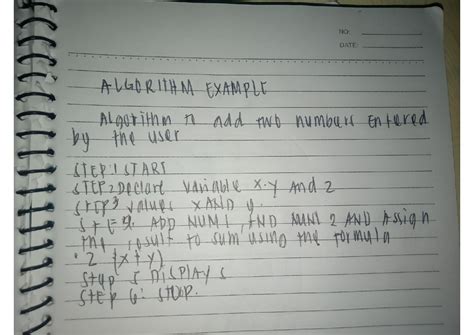 NO:
DATE:
ALGORITHM EXAMPLE
Algorithm to add two numbers Entered
by the user
STEP 1 START
STEP 2 Declare variable x.y and z
STEP 3 values x AND y.
STEP 4. ADD NUM1, AND NUM 2 AND Assign
the result to sum using the formula
z (x+y)
Step 5 DISPLAY S
STEP 6: STOP.